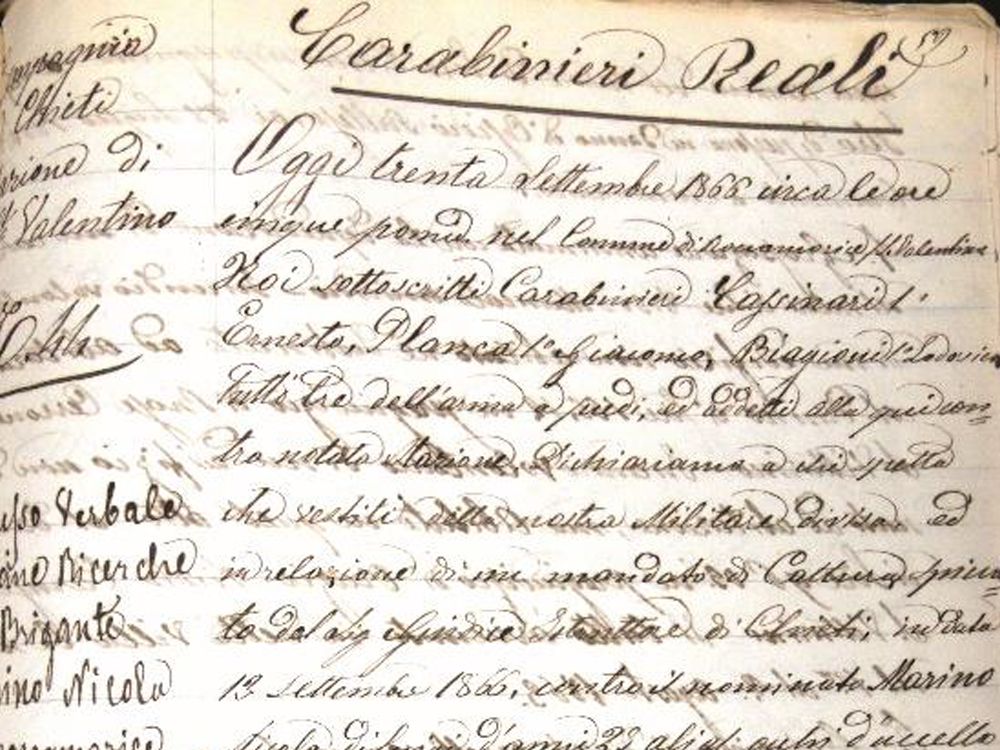 Compagnia
Chieti
Stazione di
S. Valentino
N. 44
Processo Verbale
Ricerche
Brigante
Marino Nicola
Roccamorice
Carabinieri Reali
Oggi trenta Settembre 1866 circa le ore
cinque pomid nel Comune di Roccamorice S. Valentino
Noi sottoscritti Carabinieri Cassinari 1.º
Ernesto, Planca 1º Giacomo, Biagioni 1º Lodovico
tutti tre dell'arma a piedi, ed addetti alla qui con=
tro notata Stazione, Dichiariamo a chi spetta
che vestiti della nostra Militare divisa, ed
in relazione di un mandato di Cattura spicca=
to dal Sig Giudice Istruttore di Chieti, in data
13 Settembre 1866, contro il nominato Marino
Nicola di anni 23